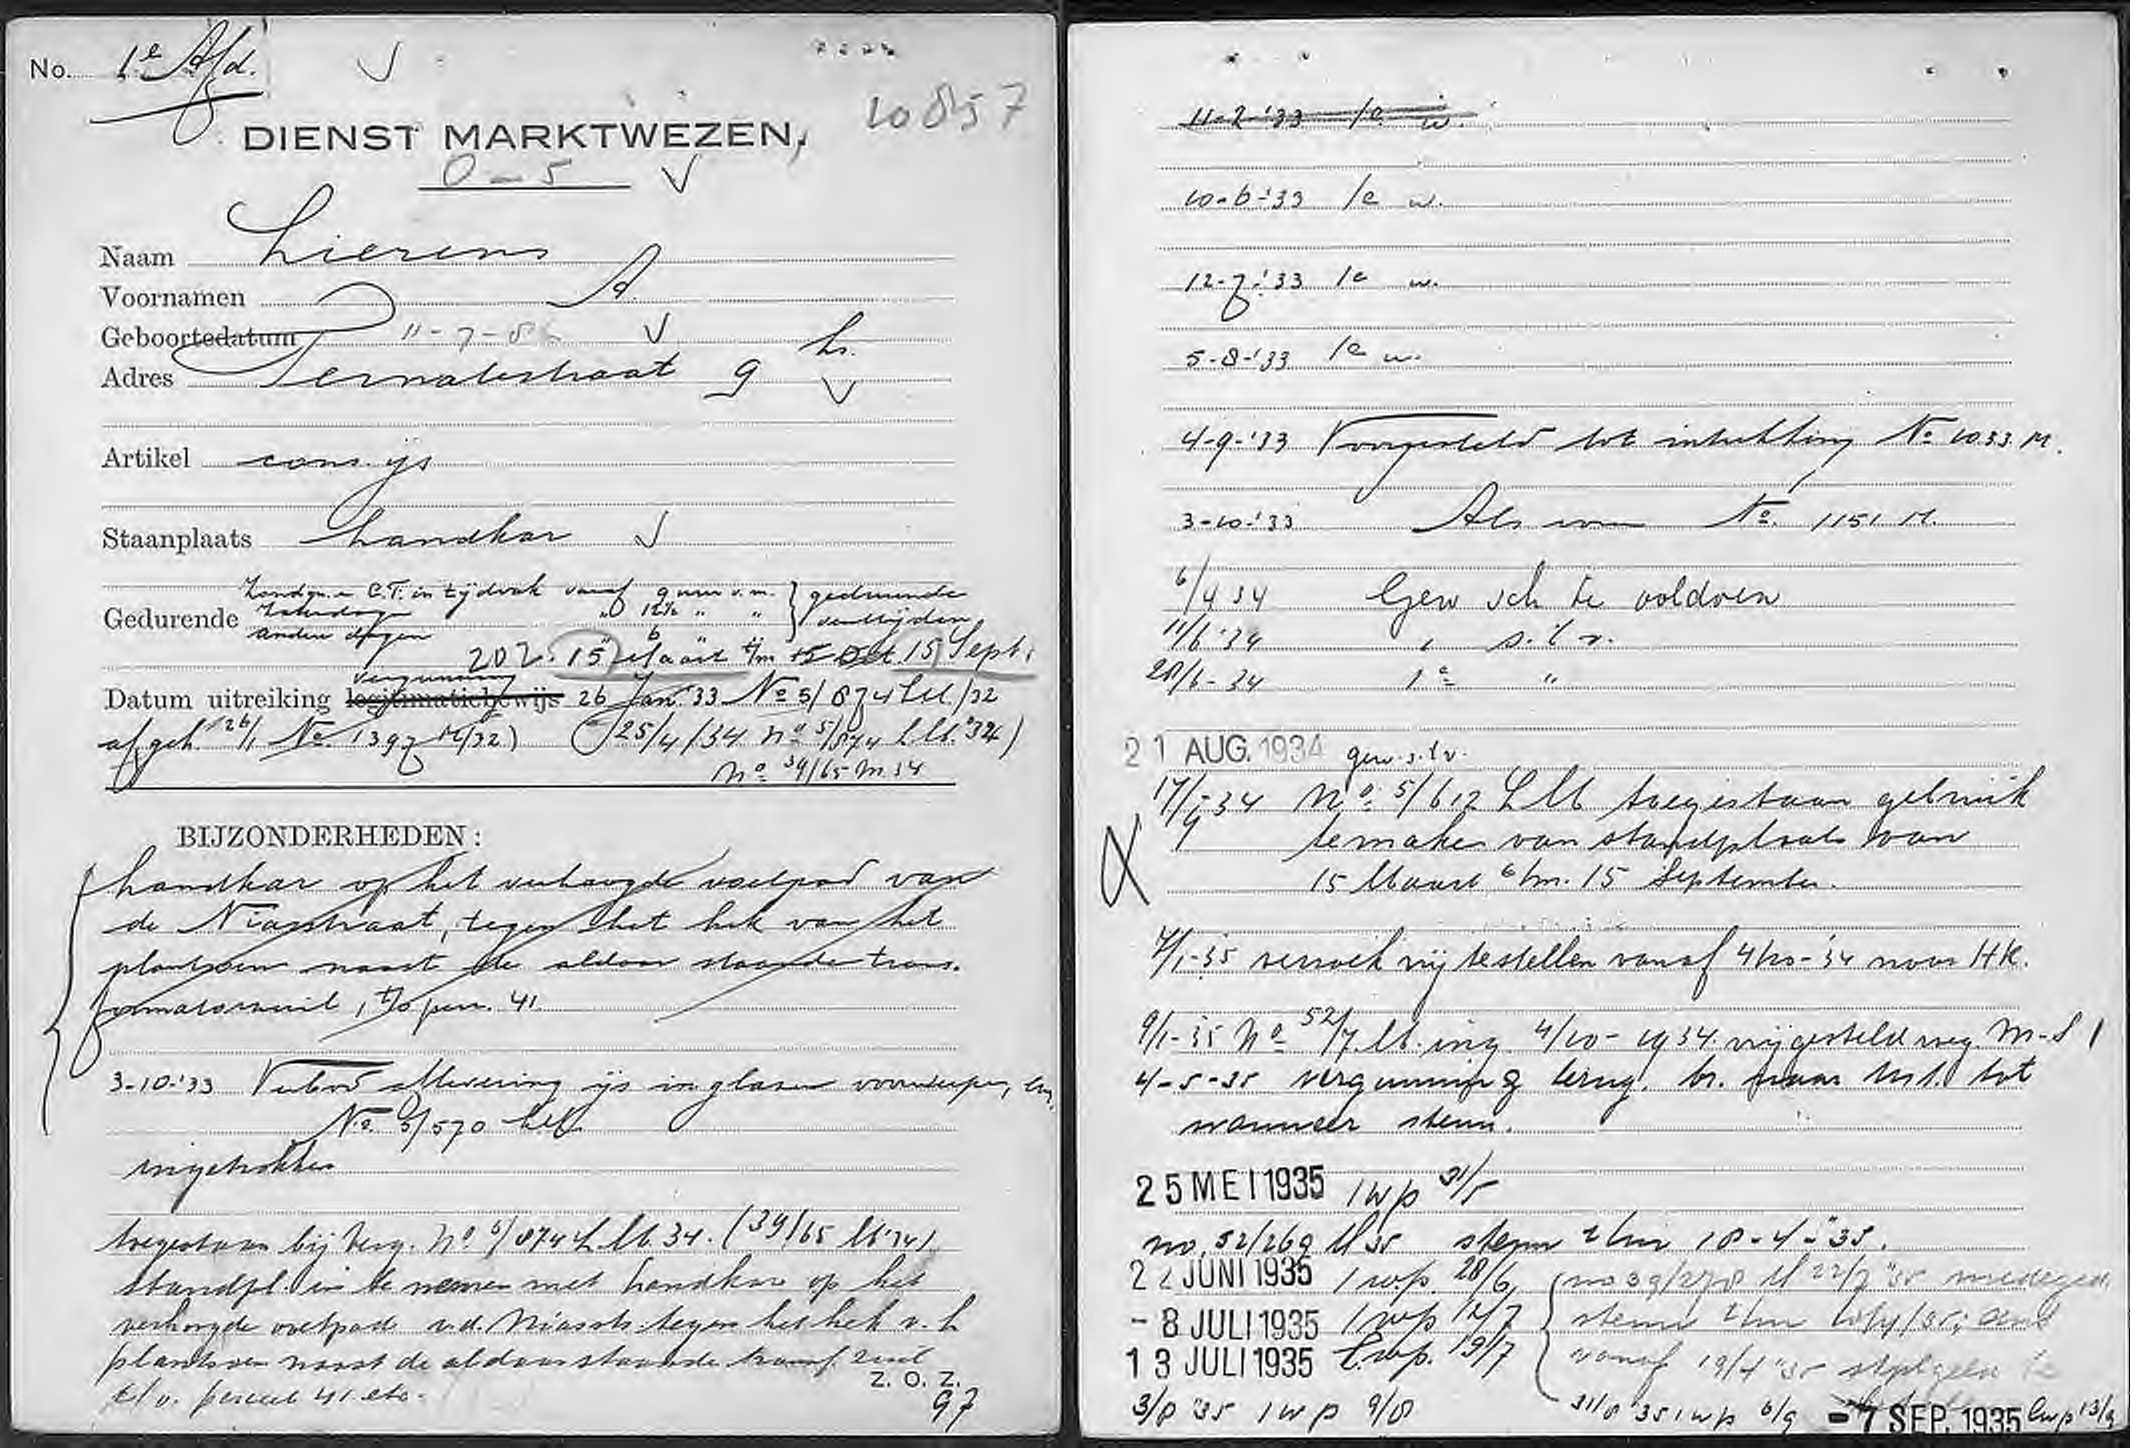 No. 1e Afd.
10857
DIENST MARKTWEZEN,
0-5
Naam Lierens
Voornamen A.
Geboortedatum 11-7-8
hs.
Adres Ternatestraat 9
Artikel cons. ijs
Staanplaats handkar
Zondgn. C.T. in tijdvak vanaf 9 uur v.m.
Gedurende Zaterdagen " 12½ " " gedurende
andere dagen venttijden
202. 15 Maart t/m 15 Oct 15 Sept.
vergunning
Datum uitreiking legitimatiebewijs 26 Jan. '33 No 5/874 L.M./32
afgeh. 26/1 No. 1397 M/32) (25/4/34 no 5/874 L.M. '32)
No 39/65 M. 34
BIJZONDERHEDEN:
handkar op het verhoogde voetpad van
de Niasstraat, tegen het hek van het
plantsoen naast de aldaar staande trans-
formatorzuil, t/o perc. 41.
3-10-'33 Verbod aflevering ijs in glazen voorwerpen,
No. 5/570
ingetrokken
toegestaan bij Verg. No 5/874 L.M. 34. (39/65 M '34)
standpl. in te nemen met handkar op het
verhoogde voetpad v.d. Niasstr. tegen het hek v. h
plantsoen naast de aldaar staande transf. zuil
t/o. perceel 41 etc.
Z.O.Z.
97
11-2-'33 1e w.
10-6-'33 1e w.
12-7-'33 1e w.
5-8-'33 1e w.
4-9-'33 Voorgesteld tot intrekking No 1033 M.
3-10-'33 Als voren No. 1151 M.
6/4 34 Gew sch te voldoen
11/6-'34 " s. t. v.
28/6-34 1e "
21 AUG. 1934 gew. s. t. v.
17/9-34 No. 5/612 LM toegestaan gebruik
te maken van standplaats van
15 Maart t/m. 15 September.
7/1-35 verzoek vrij te stellen vanaf 4/10-'34 voor H.K.
9/1-35 No 52/7 M. ing. 4/10-1934. vrijgesteld weg. M-S
4-5-35 vergunning terug. br. naar tot
wanneer steun.
25 MEI 1935 1 wp 31/5
no. 52/269 M 35 steun t/m 18-4-'35.
22 JUNI 1935 1 wp. 28/6 no 39/278 M 22/7 '35 medeged.
- 8 JULI 1935 1 wp 12/7 steun t/m
13 JULI 1935 1 wp. 19/7 vanaf 19/4 '35
3/8 '35 1 wp 9/8 31/8 '35 1 wp 6/9 - 7 SEP. 1935 1 wp 13/9